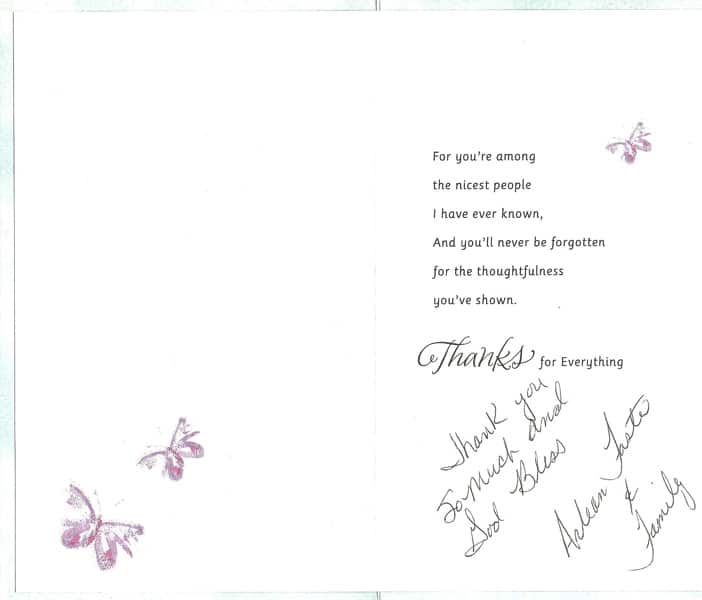 For you're among
the nicest people
I have ever known,
And you'll never be forgotten
for the thoughtfulness
you've shown.
Thanks for Everything
Thank you
So Much and
God Bless
Arlean
&
Family